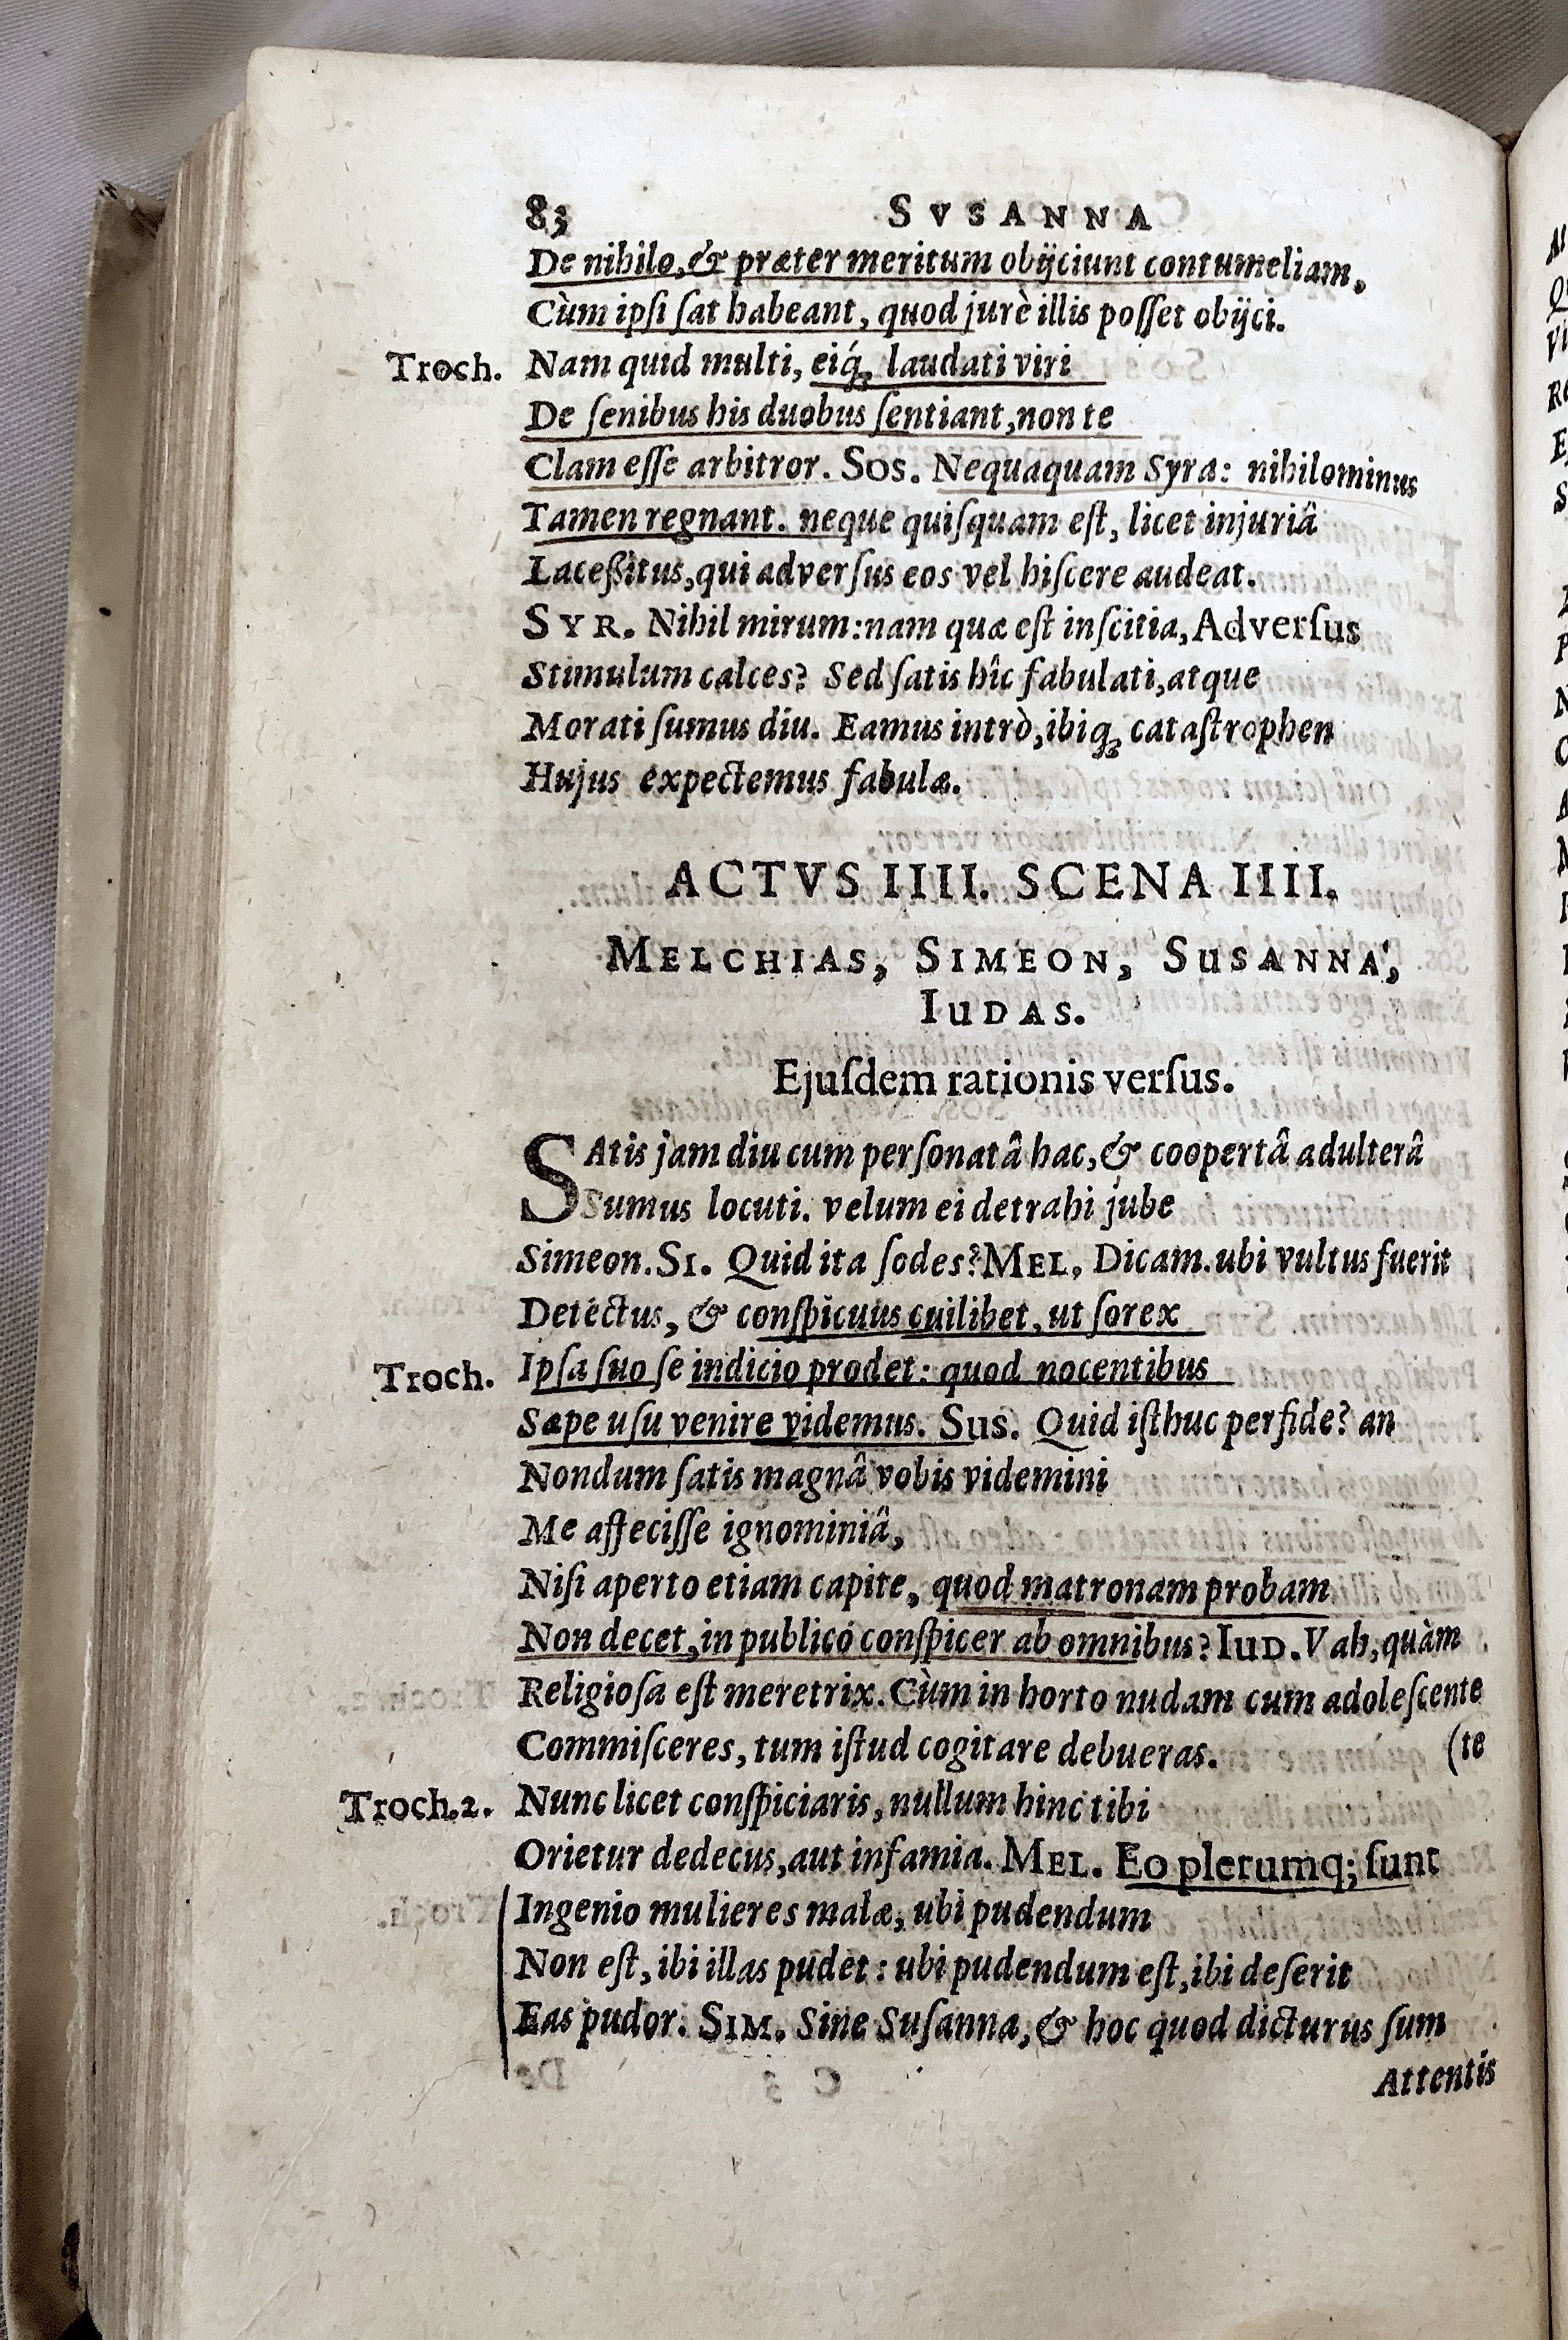 83 SVSANNA
De nihilo, & præter meritum obijciunt contumeliam,
Cùm ipsi sat habeant, quod jurè illis posset obijci.
Troch. Nam quid multi, eiq́; laudati viri
De senibus his duobus sentiant, non te
Clam esse arbitror. Sos. Nequaquam Syra: nihilominus
Tamen regnant. neque quisquam est, licet injuriâ
Laceßitus, qui adversus eos vel hiscere audeat.
SYR. Nihil mirum: nam quæ est inscitia, Adversus
Stimulum calces? Sed satis hîc fabulati, atque
Morati sumus diu. Eamus intrò, ibiq; catastrophen
Hujus expectemus fabulæ.
ACTVS IIII. SCENA IIII.
MELCHIAS, SIMEON, SUSANNA,
IUDAS.
Ejusdem rationis versus.
SAtis jam diu cum personatâ hac, & coopertâ adulterâ
Sumus locuti. velum ei detrahi jube
Simeon. SI. Quid ita sodes? MEL. Dicam. ubi vultus fuerit
Detectus, & conspicuus cuilibet, ut sorex
Troch. Ipsa suo se indicio prodet: quod nocentibus
Sæpe usu venire videmus. Sus. Quid isthuc perfide? an
Nondum satis magnâ vobis videmini
Me affecisse ignominiâ,
Nisi aperto etiam capite, quod matronam probam
Non decet, in publico conspicer ab omnibus? IUD. Vah, quàm
Religiosa est meretrix. Cùm in horto nudam cum adolescente
Commisceres, tum istud cogitare debueras. (te
Troch. 2. Nunc licet conspiciaris, nullum hinc tibi
Orietur dedecus, aut infamia. MEL. Eo plerumq; sunt
Ingenio mulieres malæ, ubi pudendum
Non est, ibi illas pudet: ubi pudendum est, ibi deserit
Eas pudor. SIM. Sine Susanna, & hoc quod dicturus sum
Attentis